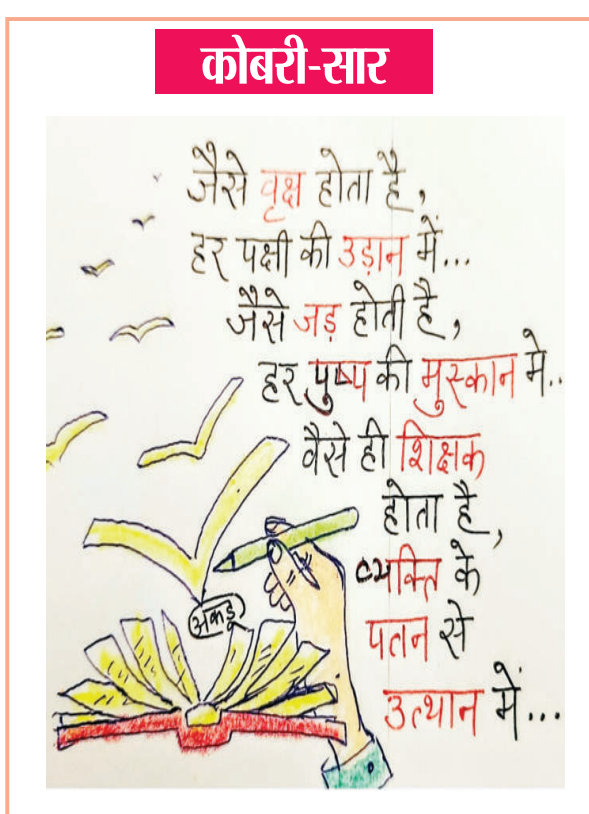 कोबरी-सार
जैसे वृक्ष होता है,
हर पक्षी की उड़ान में...
जैसे जड़ होती है,
हर पुष्प की मुस्कान में..
वैसे ही शिक्षक
होता है,
व्यक्ति के
पतन से
उत्थान में...
अकडू